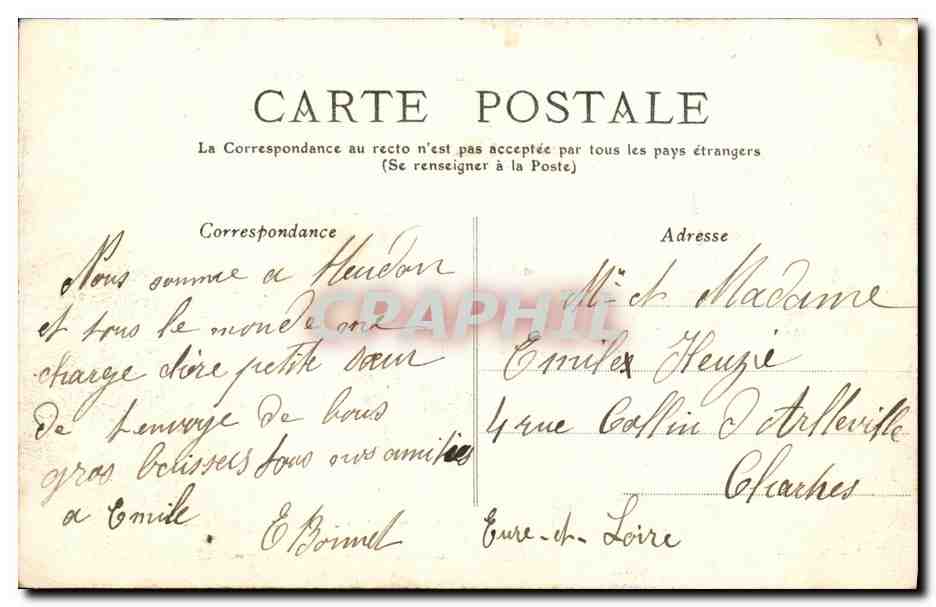 CARTE POSTALE
La Correspondance au recto n'est pas acceptée par tous les pays étrangers
(Se renseigner à la Poste)
Correspondance
Nous somme a Meudon
et tous le monde me
charge chère petite sœur
de t envoye de bons
gros baissers tous nos amitiés
a Emile
E Bonnet
Adresse
Mr et Madame
Emile Heuzé
4 rue Collin d Arlleville
Chartres
Eure-et-Loire
CPAPHIL